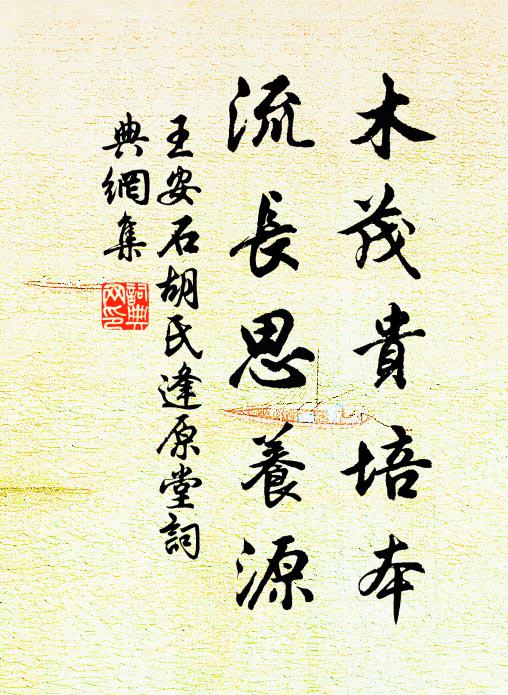 木茂貴培本
流長思養源
王安石胡氏逢原堂詞
典網集
詞典网印